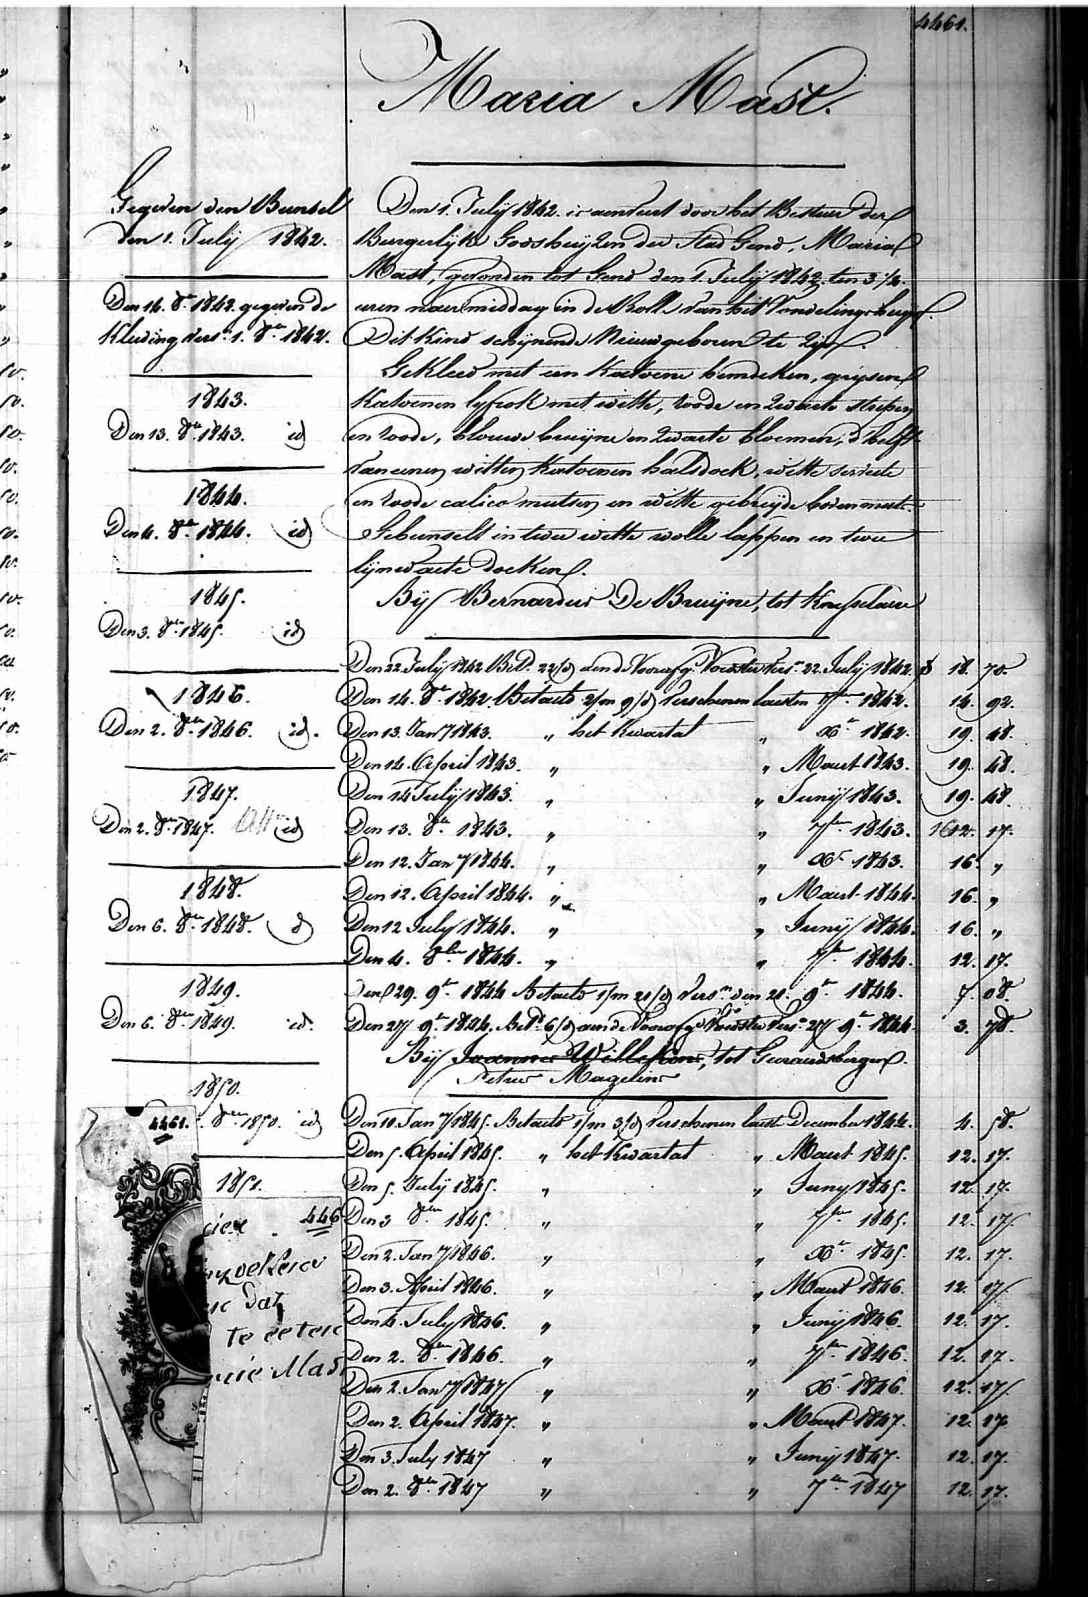 4461.
Maria Mast.
Gegeven den Bunsel
den 1. Julij 1842.
Den 14. 8.bre 1842. gegeven de
Kleeding vers.n 1. 8.bre 1842.
1843.
Den 13. 8.bre 1843. id
1844.
Den 4. 8.bre 1844. id
1845.
Den 3. 8.bre 1845. id
1846.
Den 2. 8.bre 1846. id.
1847.
Den 2. 8.bre 1847. id
1848.
Den 6. 8.bre 1848. d
1849.
Den 6. 8.bre 1849. id.
1850.
8.bre 1850. id
1851.
Den 1. Julij 1842. is aenveirt door het Bestuer der
Burgerlijke Godshuijzen der Stad Gend, Maria
Mast, gevonden tot Gend den 1. Julij 1842. ten 3 1/4
uren naermiddag in de Rolle van het Vondelingshuijs.
Dit Kind schijnende Nieuwgeboren te zijn.
Gekleed met een Katoene hemdeken, grijsen
Katoenen lyfrok met witte, roode en zwarte strepen
en roode, blouwe bruijne en zwarte bloemen, d'helft
van eenen witten Katoenen halsdoek, witte serviete
en roode calico mutsen en witte gebreijde bovenmuts.
Gebunselt in twee witte wolle lappen en twee
lijnwaete doeken.
Bij Bernardus De Bruijne, tot Knesselaere
Den 22 Julij 1842 Bet.d 22/d aen de Voorafg.e Voedster vers.n 22 July 1842. f 18. 70.
Den 14. 8.bre 1842. Betaelt 2/m 9/d verschenen laesten 7.bre 1842. 14. 92.
Den 13. Janry 1843. " het Kwartael " X.bre 1842. 19. 48.
Den 14. April 1843. " " Maert 1843. 19. 48.
Den 14 Julij 1843. " " Junij 1843. 19. 48.
Den 13. 8.bre 1843. " " 7.bre 1843. 12. 17.
Den 12. Janry 1844. " " X.bre 1843. 16. "
Den 12. April 1844. " " Maert 1844. 16. "
Den 12 July 1844. " " Junij 1844. 16. "
Den 4. 8.bre 1844. " " 7.bre 1844. 12. 17.
Den 29. 9.bre 1844 Betaelt 1/m 21/d vers.n den 21. 9.bre 1844. 7. 08.
Den 27 9.bre 1844. Bet.d 6/d aen de Voorafg.e Voedster vers.n 27 9.bre 1844. 3. 78.
Bij Joannes Willekens, tot Geeraerdsbergen.
Petrus Magelins
Den 10. Janry 1845. Betaelt 1/m 3/d verschenen laest December 1844. 4. 58.
Den 5. April 1845. " het Kwartael " Maert 1845. 12. 17.
Den 5. Julij 1845. " " Juny 1845. 12. 17.
Den 3 8.bre 1845. " " 7.bre 1845. 12. 17
Den 2. Janry 1846. " " X.bre 1845. 12. 17.
Den 3. April 1846. " " Maert 1846. 12. 17.
Den 4. July 1846. " " Junij 1846. 12. 17.
Den 2. 8.bre 1846. " " 7.bre 1846. 12. 17.
Den 2. Janry 1847 " " X.bre 1846. 12. 17
Den 2. April 1847. " " Maert 1847. 12. 17
Den 3. July 1847 " " Junij 1847. 12. 17.
Den 2. 8.bre 1847 " " 7.bre 1847 12. 17.
4461.
446
dat
te eeten